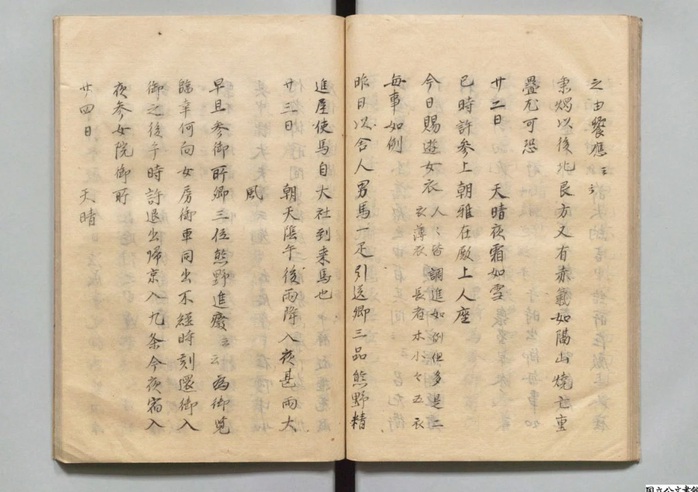 之由饗應云々
秉燭以後北艮方又有赤氣如隔山燒亡重
疊尤可恐
廿二日　天晴夜霜如雪
巳時許参上朝雅在殿上人座
今日賜遊女衣　人々皆調進如例但多是二
衣薄衣　長者木小々五衣
毎事如例
昨日以舍人男馬一疋引送卿三品熊野精
進屋使馬自大社到来馬也
廿三日　朝天陰午後雨降入夜甚雨大
風
早旦参御所卿三位熊野進發云云為御覧
臨幸何向女房御車同出不経時刻還御入
御之後午時許退出帰京入九条今夜宿入
夜参女院御所
廿四日　天晴
国立公文書館